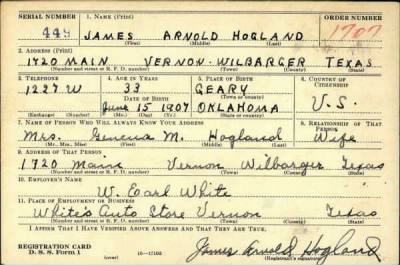 SERIAL NUMBER 1. NAME (Print) ORDER NUMBER
449 JAMES ARNOLD HOGLAND 1707
(First) (Middle) (Last)
2. ADDRESS (Print)
1720 MAIN VERNON WILBARGER TEXAS
(Number and street or R. F. D. number) (Town) (County) (State)
3. TELEPHONE 4. AGE IN YEARS 5. PLACE OF BIRTH 6. COUNTRY OF CITIZENSHIP
1227 W 33 GEARY
DATE OF BIRTH (Town or county)
June 15 1907 OKLAHOMA U.S.
(Exchange) (Number) (Mo.) (Day) (Yr.) (State or country)
7. NAME OF PERSON WHO WILL ALWAYS KNOW YOUR ADDRESS 8. RELATIONSHIP OF THAT PERSON
Mrs. M. Hogland Wife
(Mr., Mrs., Miss) (First) (Middle) (Last)
9. ADDRESS OF THAT PERSON
1720 Main Vernon Wilbarger Texas
(Number and street or R. F. D. number) (Town) (County) (State)
10. EMPLOYER'S NAME
W. Earl White
11. PLACE OF EMPLOYMENT OR BUSINESS
White's Auto Store Vernon Texas
(Number and street or R. F. D. number) (Town) (County) (State)
I AFFIRM THAT I HAVE VERIFIED ABOVE ANSWERS AND THAT THEY ARE TRUE.
REGISTRATION CARD
D. S. S. Form 1 16—17105 James Arnold Hogland
(Registrant's signature)